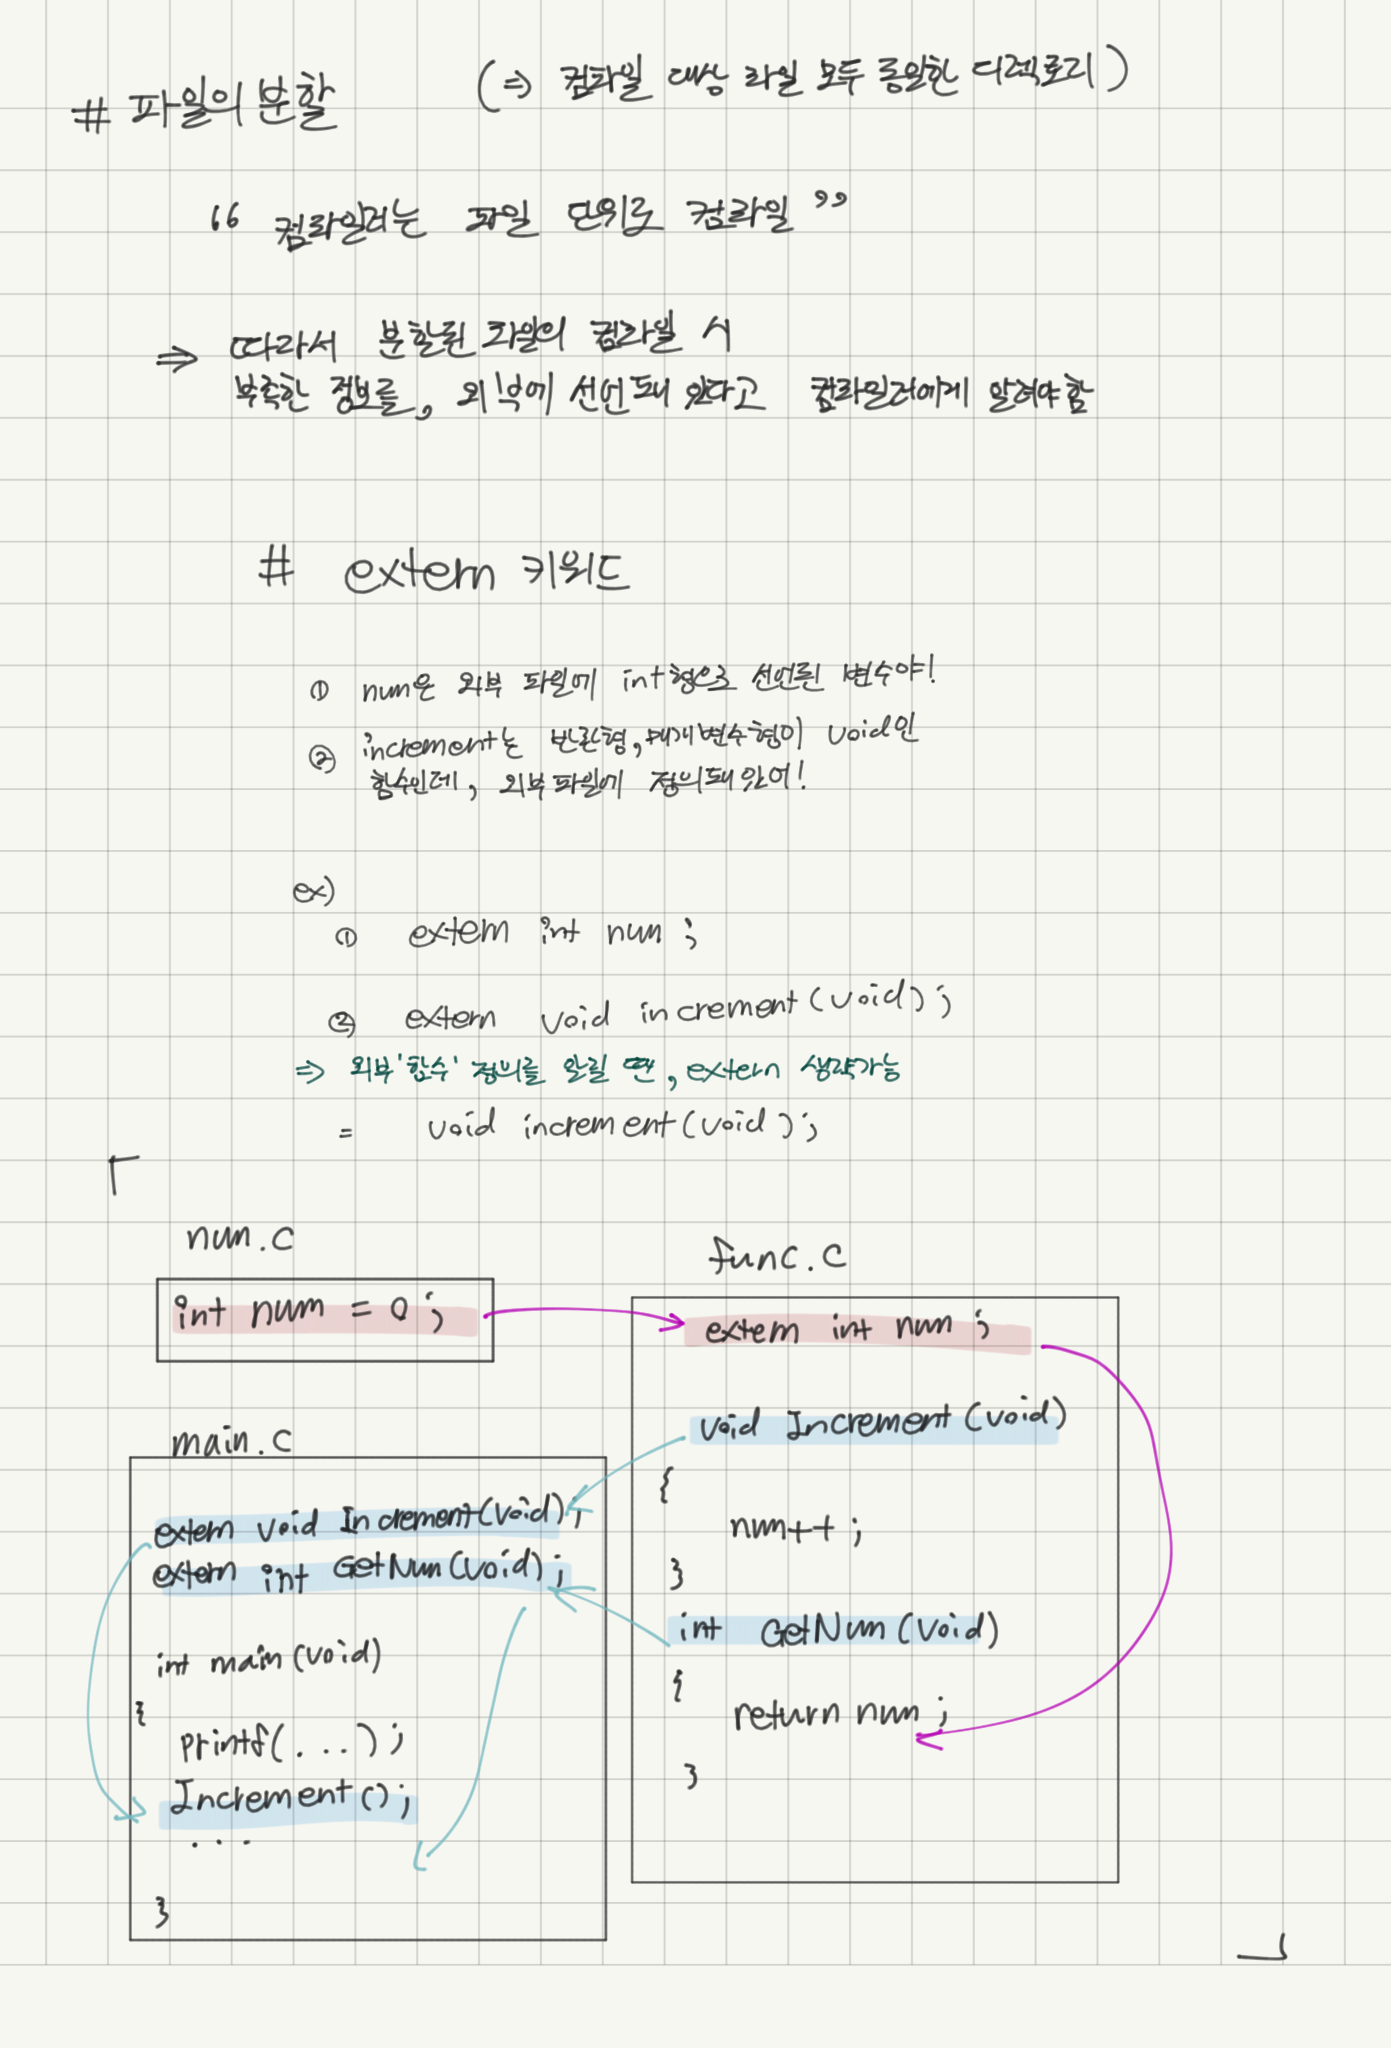 # 파일의 분할 (⇒ 컴파일 대상 파일 모두 동일한 디렉토리)
“ 컴파일러는 파일 단위로 컴파일 ”
⇒ 따라서 분할된 파일의 컴파일 시
부족한 정보를, 외부에 선언돼 있다고 컴파일러에게 알려야함
# extern 키워드
① num은 외부 파일에 int형으로 선언된 변수야!
② increment는 반환형, 매개변수형이 void인
함수인데, 외부파일에 정의돼있어!
ex)
① extern int num ;
② extern void increment(void);
⇒ 외부'함수' 정의를 알릴 땐, extern 생략가능
= void increment(void);
num.c
int num = 0 ;
main.c
extern void Increment(void);
extern int GetNum(void);
int main(void)
{
printf(...);
Increment();
...
}
func.c
extern int num ;
void Increment(void)
{
num++ ;
}
int GetNum(void)
{
return num ;
}